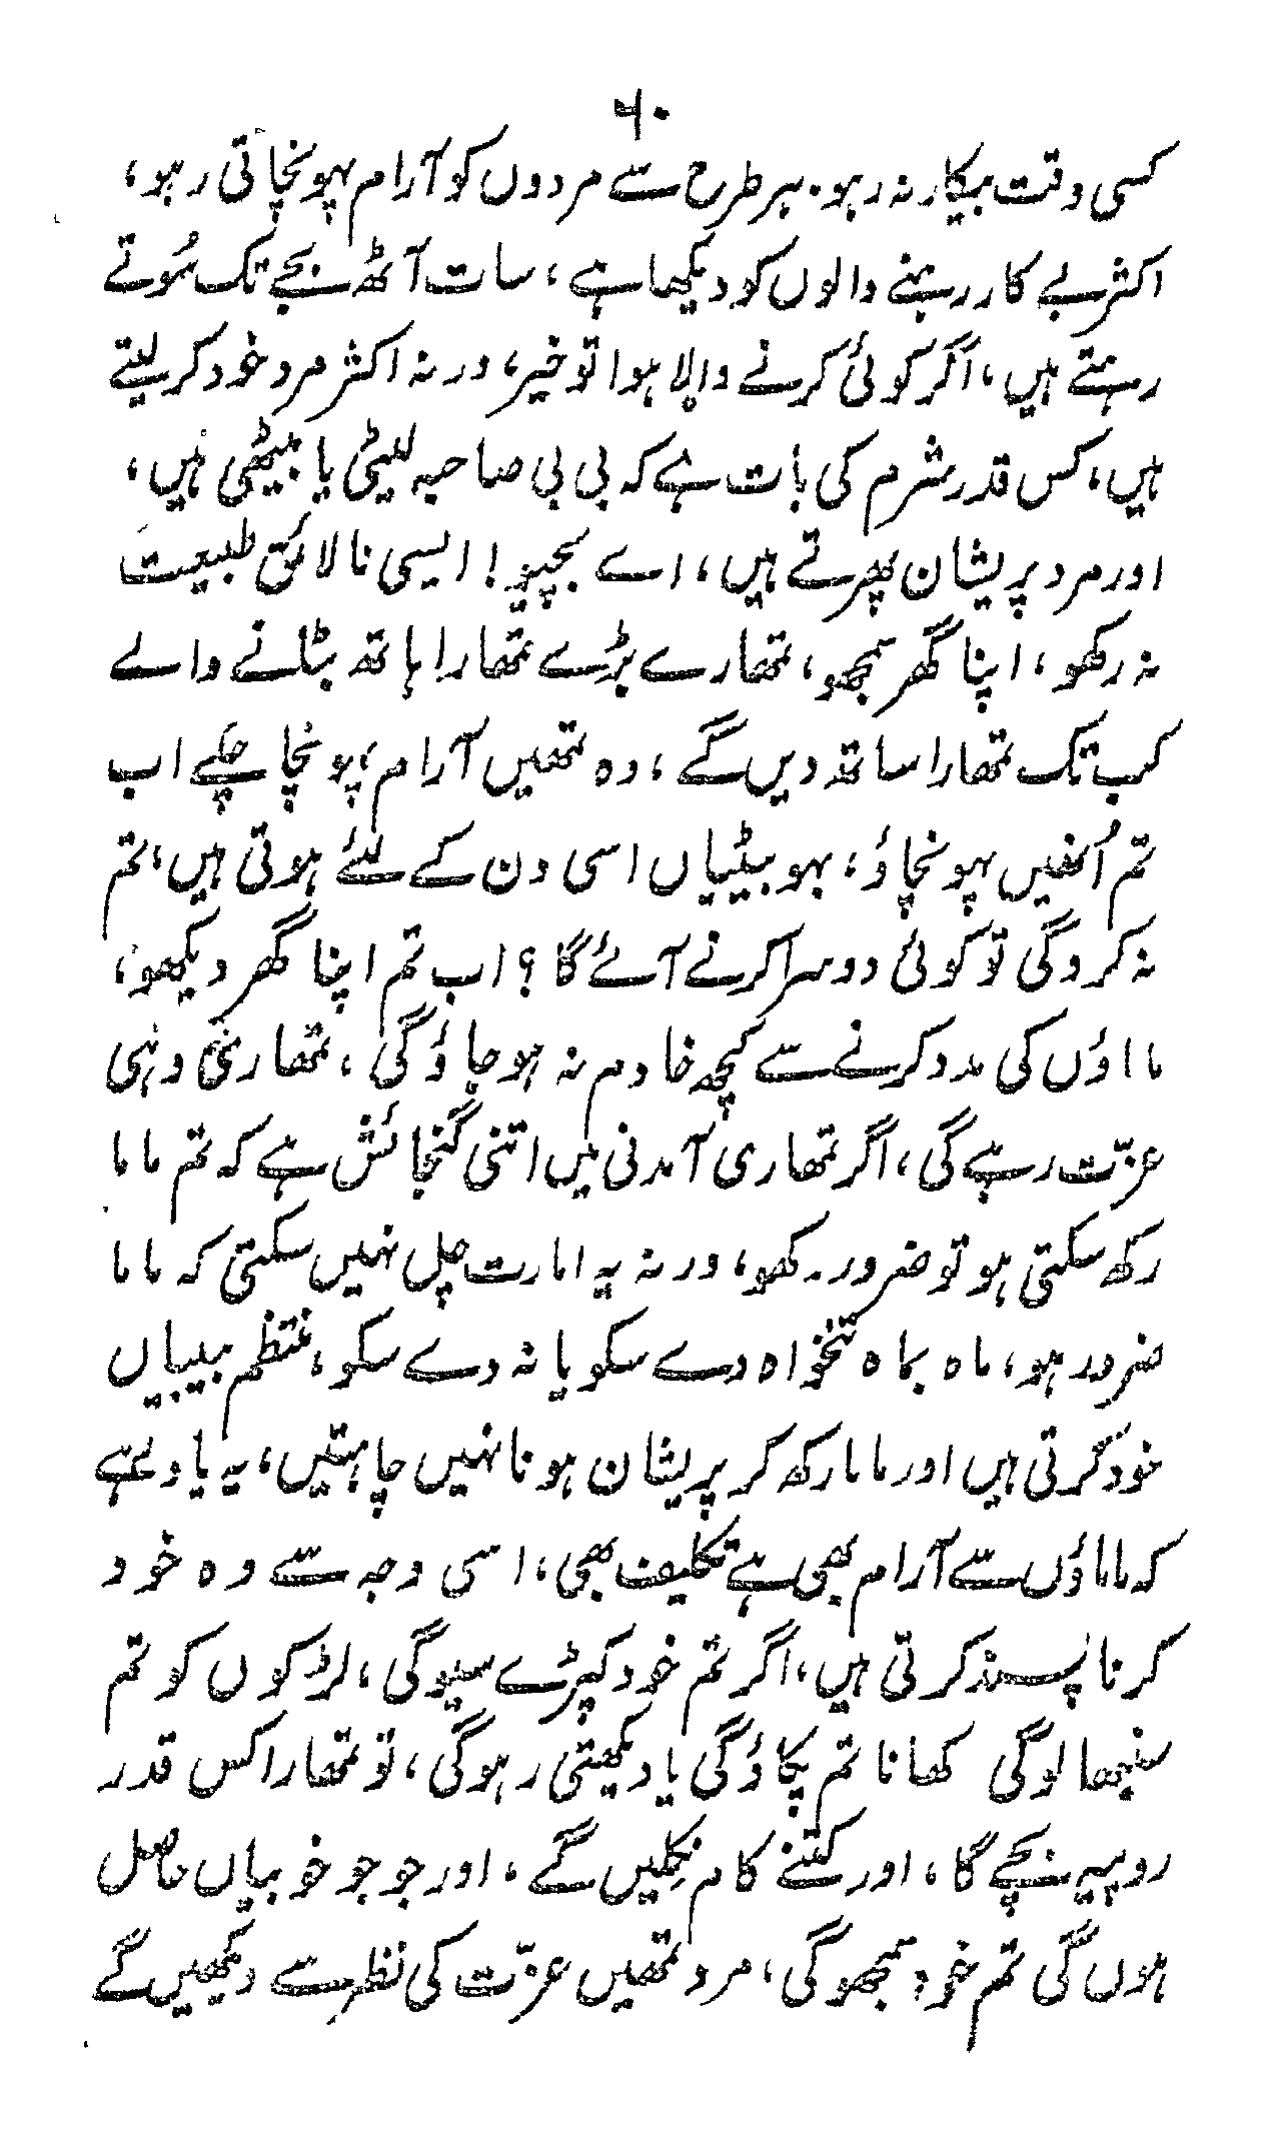 ۶۰
کسی وقت بیکار نہ رہو۔ ہر طرح سے مردوں کو آرام پہونچاتی رہو،
اکثر بے کار رہنے والوں کو دیکھا ہے، سات آٹھ بجے تک سُوتے
رہتے ہیں، اگر کوئی کرنے والا ہوا تو خیر، ورنہ اکثر مرد خود کر لیتے
ہیں، کس قدر شرم کی بات ہے کہ بی بی صاحبہ لیٹی یا بیٹھی ہیں،
اور مرد پریشان پھرتے ہیں، اے بچیو! ایسی نالائق طبیعت
نہ رکھو، اپنا گھر سمجھو، تمھارے بڑے تمھارا ہاتھ بٹانے والے
کب تک تمھارا ساتھ دیں گے، وہ تمھیں آرام پہونچا چکے اب
تم اُنھیں پہونچاؤ، بہو بیٹیاں اسی دن کے لئے ہوتی ہیں، تم
نہ کرو گی تو کوئی دوسرا کرنے آئے گا؟ اب تم اپنا گھر دیکھو،
ماماؤں کی مدد کرنے سے کچھ خادم نہ ہو جاؤ گی، تمھاری وہی
عزّت رہے گی، اگر تمھاری آمدنی میں اتنی گنجائش ہے کہ تم ماما
رکھ سکتی ہو تو ضرور رکھو، ورنہ یہ امارت چل نہیں سکتی کہ ماما
ضرور ہو، ماہ بماہ تنخواہ دے سکو یا نہ دے سکو، منتظم بیبیاں
خود کرتی ہیں اور ماما رکھ کر پریشان ہونا نہیں چاہتیں، یہ یاد رہے
کہ ماماؤں سے آرام بھی ہے تکلیف بھی، اسی وجہ سے وہ خود
کرنا پسند کرتی ہیں، اگر تم خود کپڑے سیو گی، لڑکوں کو تم
سنبھالو گی کھانا تم پکاؤ گی یا دیکھتی رہو گی، تو تمھارا کس قدر
روپیہ بچے گا، اور کتنے کام نکلیں گے، اور جو جو خوبیاں حاصل
ہوں گی تم خود سمجھو گی، مرد تمھیں عزّت کی نظر سے دیکھیں گے